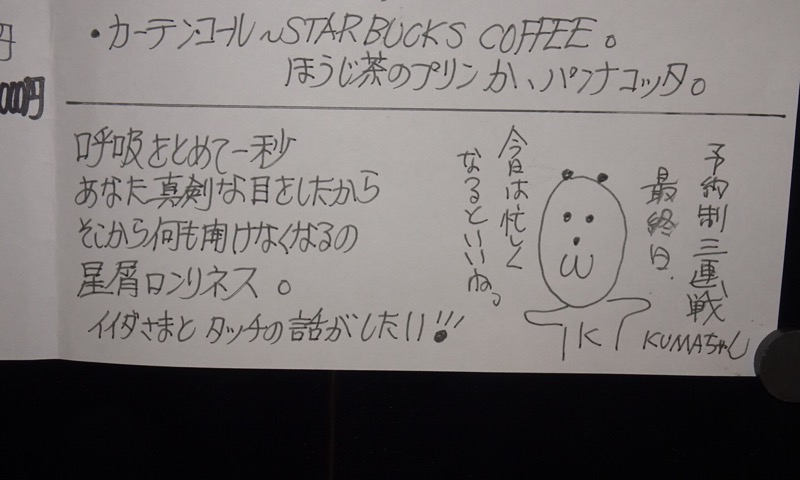 円
000円
・カーテンコール〜STARBUCKS COFFEE。
ほうじ茶のプリンか、パンナコッタ。
呼吸をとめて一秒
あなた真剣な目をしたから
そこから何も聞けなくなるの
星屑ロンリネス。
イイダさまと タッチの話がしたい!!!
予約制三連戦
最終日.
今日は忙しく
なるといいね。
K
KUMAちゃん